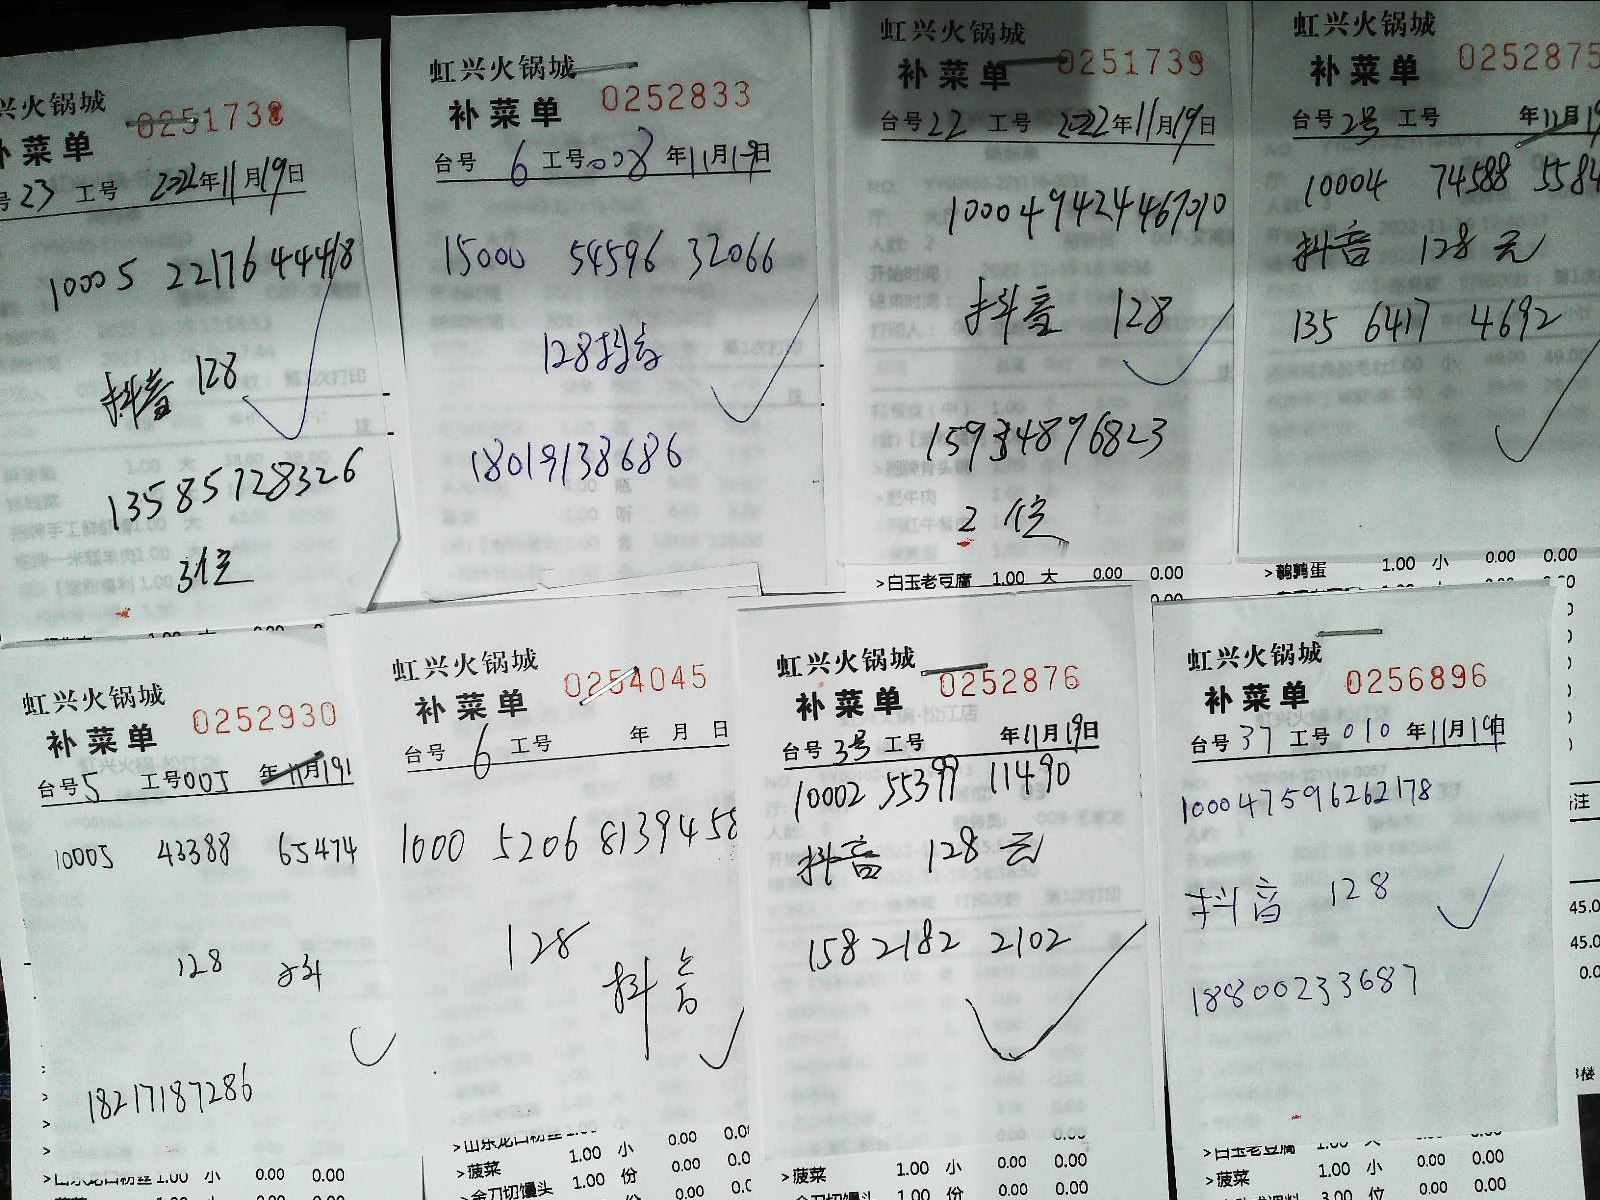 兴火锅城
0251738
补菜单
号23 工号 2022年11月19日
10005 22176 44418
抖音 128
13585728326
3位
虹兴火锅城
补菜单 0252833
台号 6 工号008 年11月19日
15000 54596 32066
128抖音
18019138686
虹兴火锅城
补菜单 0251739
台号22 工号 2022年11月19日
1000494244 67010
抖音 128
15934896823
2位
>白玉老豆腐 1.00 大 0.00 0.00
虹兴火锅城
补菜单 0252875
台号2号 工号 年11月19
10004 74588 5584
抖音 128元
135 6417 4692
>鹌鹑蛋 1.00 小 0.00 0.00
虹兴火锅城
补菜单 0252930
台号5 工号005 年11月19日
10005 43388 65474
128 抖
18217187286
1.00 小 0.00 0.00
虹兴火锅城
补菜单 0254045
台号 6 工号 年 月 日
1000 5206 8139458
128
抖音
>山东龙口粉丝1.00 小 0.00 0.00
>菠菜 1.00 份 0.00 0.00
虹兴火锅城
补菜单 0252876
台号3号 工号 年11月19日
10002 55399 11490
抖音 128元
158 2182 2102
>菠菜 1.00 小 0.00 0.00
1.00 份 0.00 0.00
虹兴火锅城
补菜单 0256896
台号37 工号010 年11月19日
100047596262178
抖音 128
18800233687
>白玉老豆腐 1.00 大 0.00 0.00
>菠菜 1.00 小 0.00 0.00
3.00 位 0.00 0.00
注
45.0
45.0
0.0